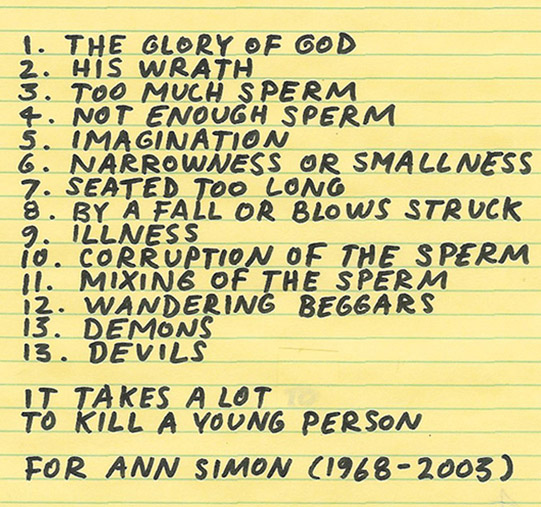 1. THE GLORY OF GOD
2. HIS WRATH
3. TOO MUCH SPERM
4. NOT ENOUGH SPERM
5. IMAGINATION
6. NARROWNESS OR SMALLNESS
7. SEATED TOO LONG
8. BY A FALL OR BLOWS STRUCK
9. ILLNESS
10. CORRUPTION OF THE SPERM
11. MIXING OF THE SPERM
12. WANDERING BEGGARS
13. DEMONS
13. DEVILS
IT TAKES A LOT
TO KILL A YOUNG PERSON
FOR ANN SIMON (1968-2003)